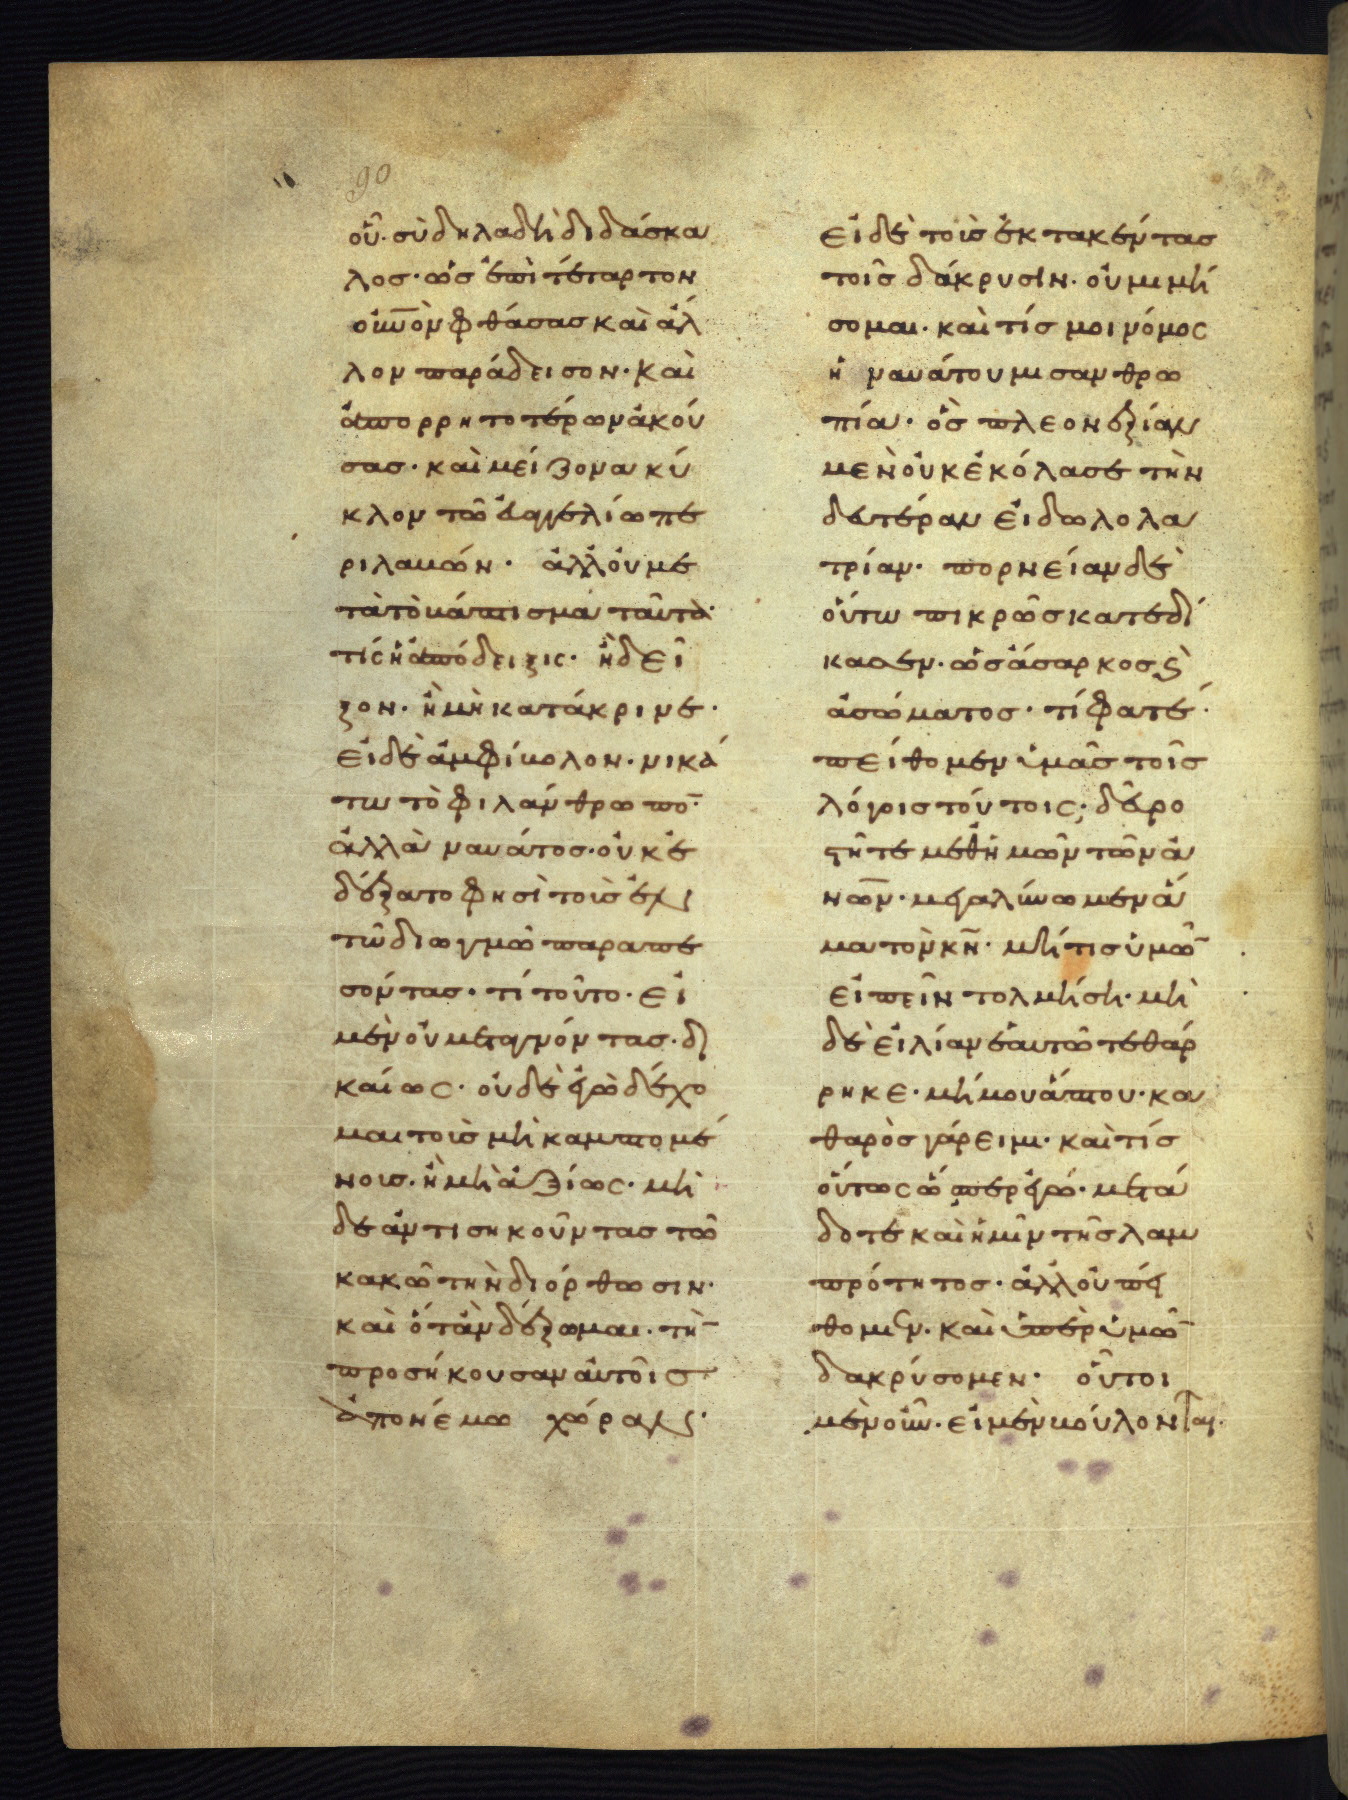 90
οὗ· σὺ δηλαδὴ διδάσκα
λος· ὡς ἐπὶ τέταρτον
οὐ̅ν̅ὸν φθάσας καὶ ἄλ
λον παράδεισον· καὶ
ἀπορρητοτέρων ἀκού
σας· καὶ μείζονα κύ
κλον τῶ ἐυαγγελίω πε
ριλαβών· ἀλλ' οὐ με
τὰ τὸ βάπτισμα ταῦτα·
τίς ἡ ἀπόδειξις· ἢ δεῖ
ξον· ἢ μὴ κατάκρινε·
εἰ δὲ ἀμφίβολον· νικά
τω τὸ φιλάνθρωπο̅·
ἀλλὰ ναυάτος· οὐκ ἐ
δέξατο φησὶ τοὺς ἐν
τῶ διωγμῶ παραπε
σόντας· τί τοῦτο· εἰ
μὲν οὐ μεταγνόντας· δι
καίως· οὐδὲ ἐγὼ δέχο
μαι τοὺς μὴ καμπτομέ
νους· ἢ μὴ ἀξίως· μὴ
δὲ ἀντισηκοῦντας τῶ
κακῶ τὴν διόρθωσιν·
καὶ ὅταν δέξωμαι· τὴ̅
προσήκουσαν αὐτοῖς
ἀπονέμω χώραν·
εἰ δὲ τοὺς ἐκτακέντας
τοῖς δάκρυσιν· οὐ μιμή
σομαι· καὶ τίς μοι νόμος
ἡ ναυάτου μισανθρω
πία· ὃς πλεονεξίαν
μὲν οὐκ ἐκόλασε τὴν
δευτέραν εἰδωλολα
τρίαν· πορνείαν δὲ
οὕτω πικρῶς κατεδί
κασεν· ὡς ἄσαρκος ϗ
ἀσώματος· τί φατέ·
πείθομεν ὑμᾶς τοῖς
λόγοις τούτοις; δεῦρο
στῆτε μεθ' ἡμῶν τῶν ἀ
ν̅ω̅ν· μεγαλύνωμεν ἅ
μα τὸν κ̅ν̅· μή τις ὑμῶ̅
εἰπεῖν τολμήση· μὴ
δὲ εἰ λίαν ἑαυτῶ τεθάρ
ρηκε· μή μου ἅπτου· κα
θαρὸς γάρ εἰμι· καὶ τίς
οὕτως ὥσπερ ἐγώ· μετά
δοτε καὶ ἡμῖν τῆς λαμ
πρότητος· ἀλλ' οὐ πεί
θομεν· καὶ ὑπὲρ ὑμῶ̅
δακρύσομεν· οὗτοι
μὲν οὖν· εἰ μὲν βούλονται·